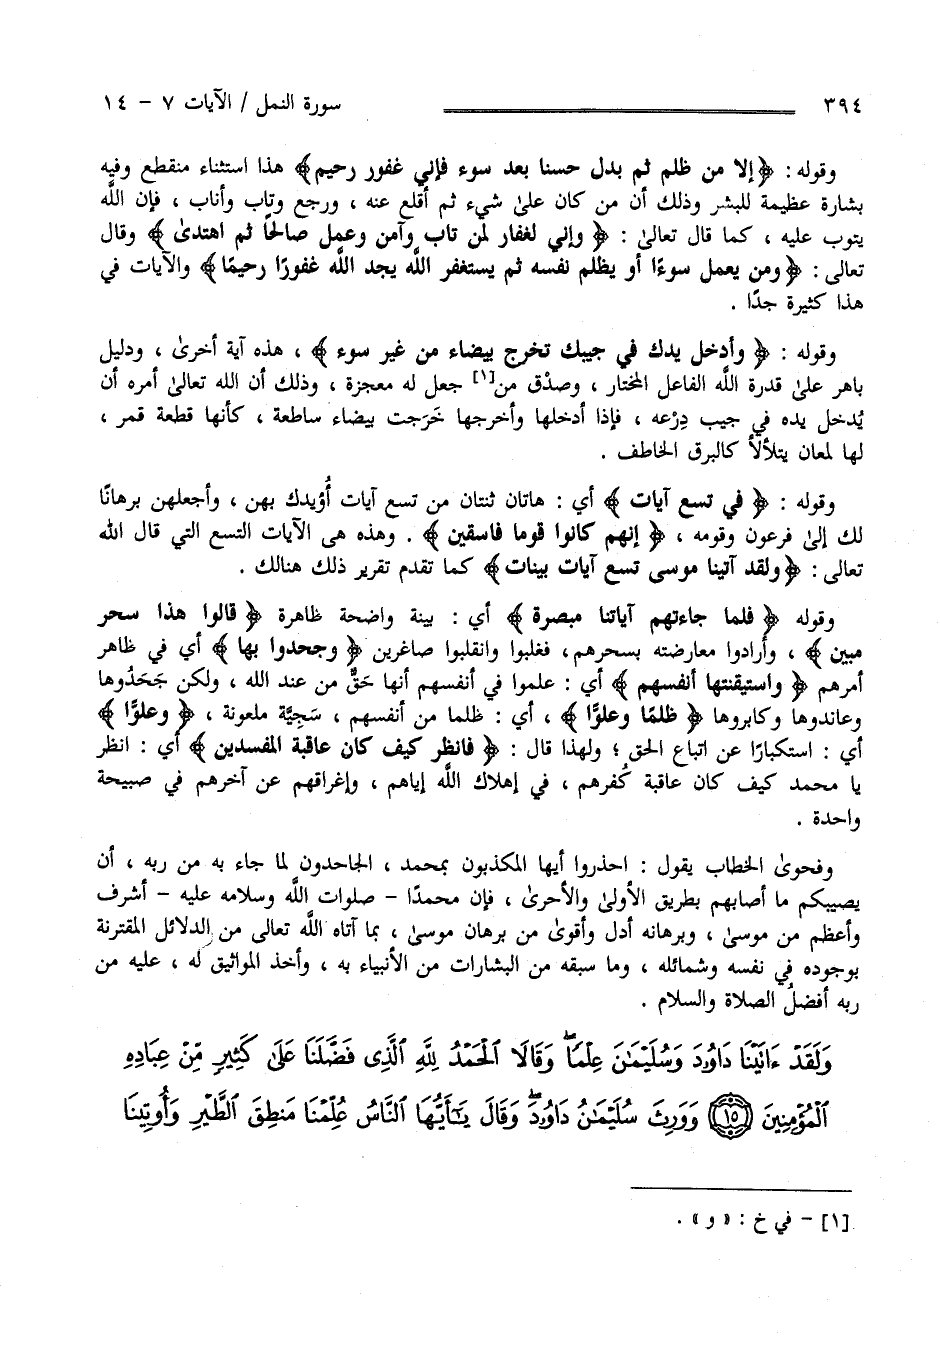 ٣٩٤ سورة النمل / الآيات ٧ - ١٤
وقوله : ﴿ إلا من ظلم ثم بدل حسنا بعد سوء فإني غفور رحيم ﴾ هذا استثناء منقطع وفيه
بشارة عظيمة للبشر وذلك أن من كان علىٰ شيء ثم أقلع عنه ، ورجع وتاب وأناب ، فإن اللَّه
يتوب عليه ، كما قال تعالىٰ : ﴿ وإني لغفار لمن تاب وآمن وعمل صالحًا ثم اهتدىٰ ﴾ وقال
تعالى : ﴿ ومن يعمل سوءًا أو يظلم نفسه ثم يستغفر اللَّه يجد اللَّه غفورًا رحيمًا ﴾ والآيات في
هذا كثيرة جدًا .
وقوله : ﴿ وأدخل يدك في جيبك تخرج بيضاء من غير سوء ﴾ ، هذه آية أخرىٰ ، ودليل
باهر علىٰ قدرة اللَّه الفاعل المختار ، وصدْق من[١] جعل له معجزة ، وذلك أن الله تعالىٰ أمره أن
يُدخل يده في جيب دِرْعه ، فإذا أدخلها وأخرجها خَرَجت بيضاء ساطعة ، كأنها قطعة قمر ،
لها لمعان يتلألأ كالبرق الخاطف .
وقوله : ﴿ في تسع آيات ﴾ أي : هاتان ثنتان من تسع آيات أُؤيدك بهن ، وأجعلهن برهانًا
لك إلىٰ فرعون وقومه ، ﴿ إنهم كانوا قوما فاسقين ﴾ . وهذه هى الآيات التسع التي قال الله
تعالى : ﴿ ولقد آتينا موسى تسع آيات بينات ﴾ كما تقدم تقرير ذلك هنالك .
وقوله ﴿ فلما جاءتهم آياتنا مبصرة ﴾ أي : بينة واضحة ظاهرة ﴿ قالوا هذا سحر
مبين ﴾ ، وأرادوا معارضته بسحرهم، فغلبوا وانقلبوا صاغرين ﴿ وجحدوا بها ﴾ أي في ظاهر
أمرهم ﴿ واستيقنتها أنفسهم ﴾ أي : علموا في أنفسهم أنها حَقٌّ من عند الله ، ولكن جَحَدُوها
وعاندوها وكابروها ﴿ ظلمًا وعلوًّا ﴾ ، أي : ظلما من أنفسهم ، سَجِيَّة ملعونة ، ﴿ وعلوًّا ﴾
أي : استكبارًا عن اتباع الحق ؛ ولهذا قال : ﴿ فانظر كيف كان عاقبة المفسدين ﴾ أي : انظر
يا محمد كيف كان عاقبة كُفرهم ، في إهلاك اللَّه إياهم ، وإغراقهم عن آخرهم في صبيحة
واحدة .
وفحوىٰ الخطاب يقول : احذروا أيها المكذبون بمحمد ، الجاحدون لما جاء به من ربه ، أن
يصيبكم ما أصابهم بطريق الأولىٰ والأحرىٰ ، فإن محمدًا - صلوات اللَّه وسلامه عليه - أشرف
وأعظم من موسىٰ ، وبرهانه أدل وأقوىٰ من برهان موسىٰ ، بما آتاه اللَّه تعالى من الدلائل المقترنة
بوجوده في نفسه وشمائله ، وما سبقه من البشارات من الأنبياء به ، وأخذ المواثيق له ، عليه من
ربه أفضلُ الصلاة والسلام .
وَلَقَدْ ءَاتَيْنَا دَاوُۥدَ وَسُلَيْمَٰنَ عِلْمًاۖ وَقَالَا ٱلْحَمْدُ لِلَّهِ ٱلَّذِى فَضَّلَنَا عَلَىٰ كَثِيرٍ مِّنْ عِبَادِهِ
ٱلْمُؤْمِنِينَ ﴿١٥﴾ وَوَرِثَ سُلَيْمَٰنُ دَاوُۥدَۖ وَقَالَ يَٰٓأَيُّهَا ٱلنَّاسُ عُلِّمْنَا مَنطِقَ ٱلطَّيْرِ وَأُوتِينَا
[١] - في خ : « و » .